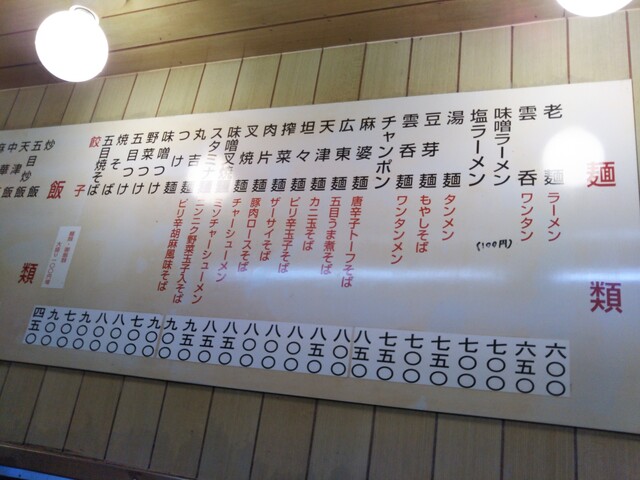 麺類
老麺 ラーメン 六〇〇
雲呑 ワンタン 六五〇
味噌ラーメン 七〇〇
塩ラーメン (100円) 七〇〇
湯麺 タンメン 七五〇
豆芽麺 もやしそば 七〇〇
雲呑麺 ワンタンメン 七五〇
チャンポン 七五〇
麻婆麺 唐辛子トーフそば 八五〇
広東麺 五目うま煮そば 八五〇
天津麺 カニ玉そば 八五〇
坦々麺 ピリ辛玉子そば 八〇〇
搾菜麺 ザーサイそば 八〇〇
肉片麺 豚肉ロースそば 八〇〇
叉焼麺 チャーシューメン 八〇〇
味噌叉焼麺 ミソチャーシューメン 八五〇
スタミナ麺
丸吉麺 ニンニク野菜玉子入そば
つけ麺 ピリ辛胡麻風味そば
味噌つけ麺
野菜つけ
五目つけ
焼そば
五目焼そば
餃子 四五〇
飯類
炒飯
五目炒飯
天津飯
中華飯